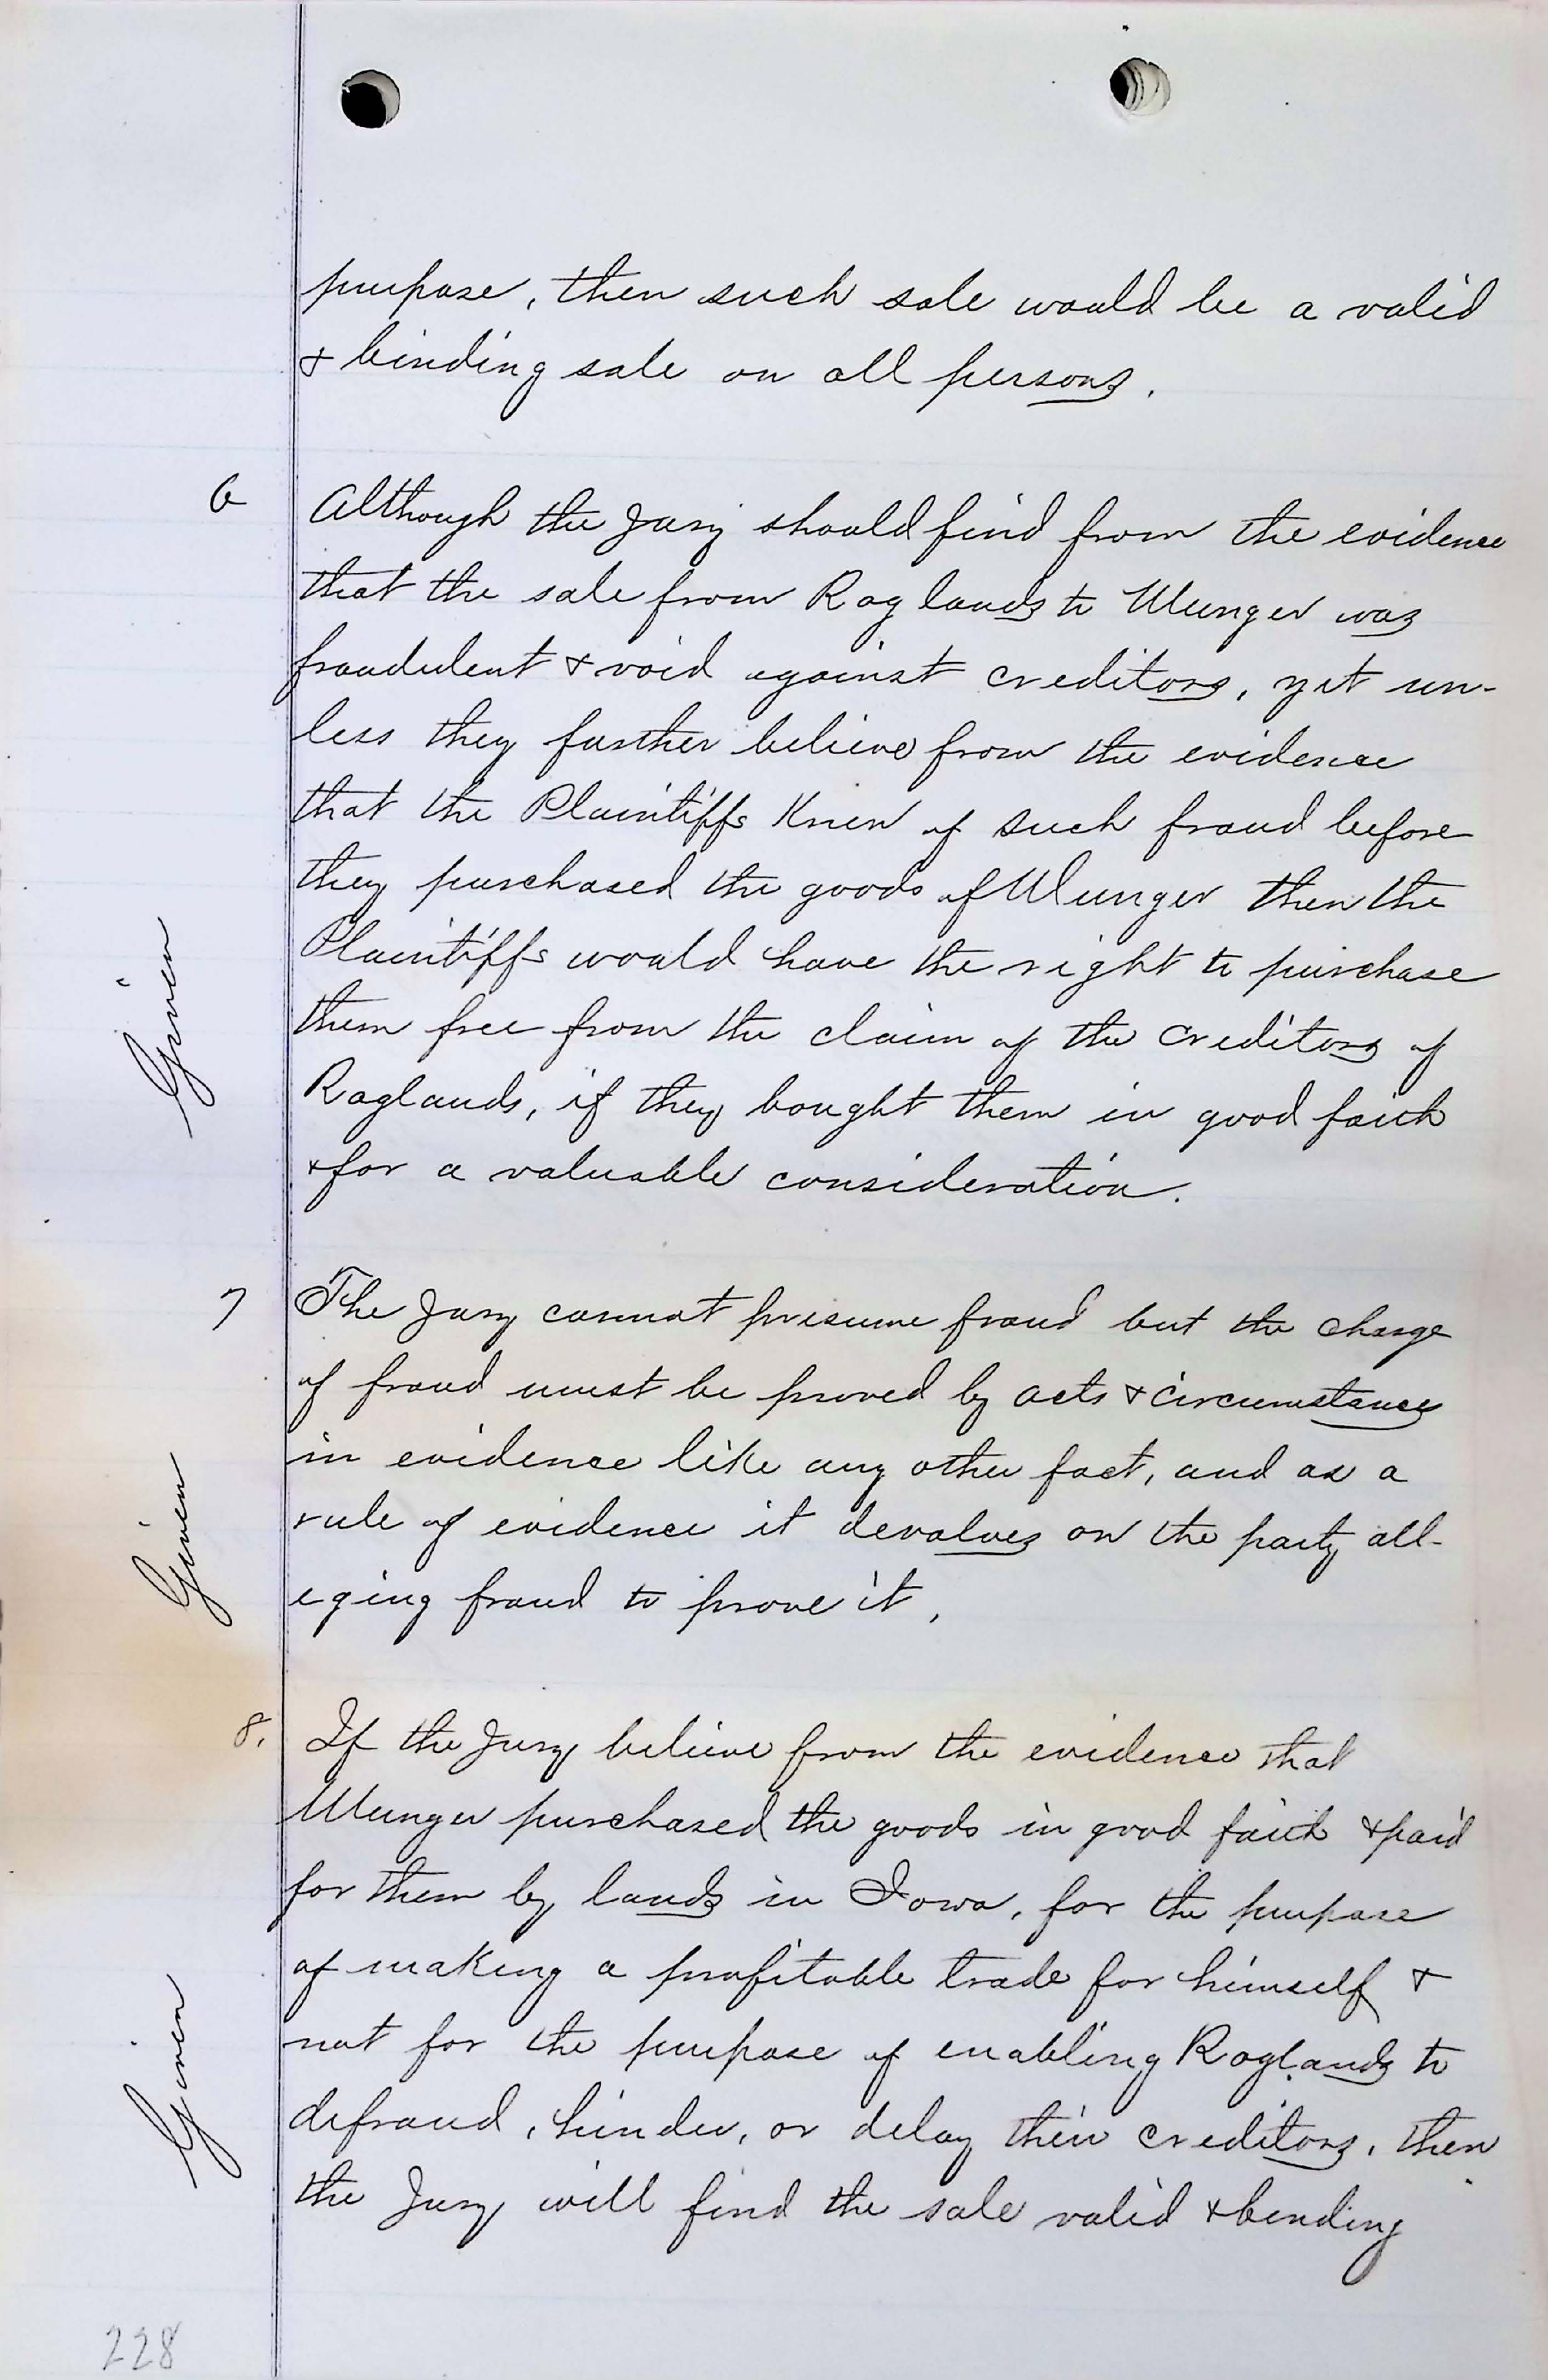 purpose, then such sale would be a valid
& binding sale on all persons.
6 Although the Jury should find from the evidence
that the sale from Raglands to Munger was
fraudulent & void against creditors, yet un-
less they further believe from the evidence
that the Plaintiffs Knew of such fraud before
they purchased the goods of Munger then the
Plaintiffs would have the right to purchase
them free from the claim of the creditors of
Raglands, if they bought them in good faith
& for a valuable consideration.
Given
7 The Jury cannot presume fraud but the charge
of fraud must be proved by acts & circumstances
in evidence like any other fact, and as a
rule of evidence it devolves on the party all-
eging fraud to prove it,
Given
8. If the Jury believe from the evidence that
Munger purchased the goods in good faith & paid
for them by lands in Iowa, for the purpose
of making a profitable trade for himself &
not for the purpose of enabling Raglands to
defraud, hinder, or delay their creditors, then
the Jury will find the sale valid & bending
Given
228